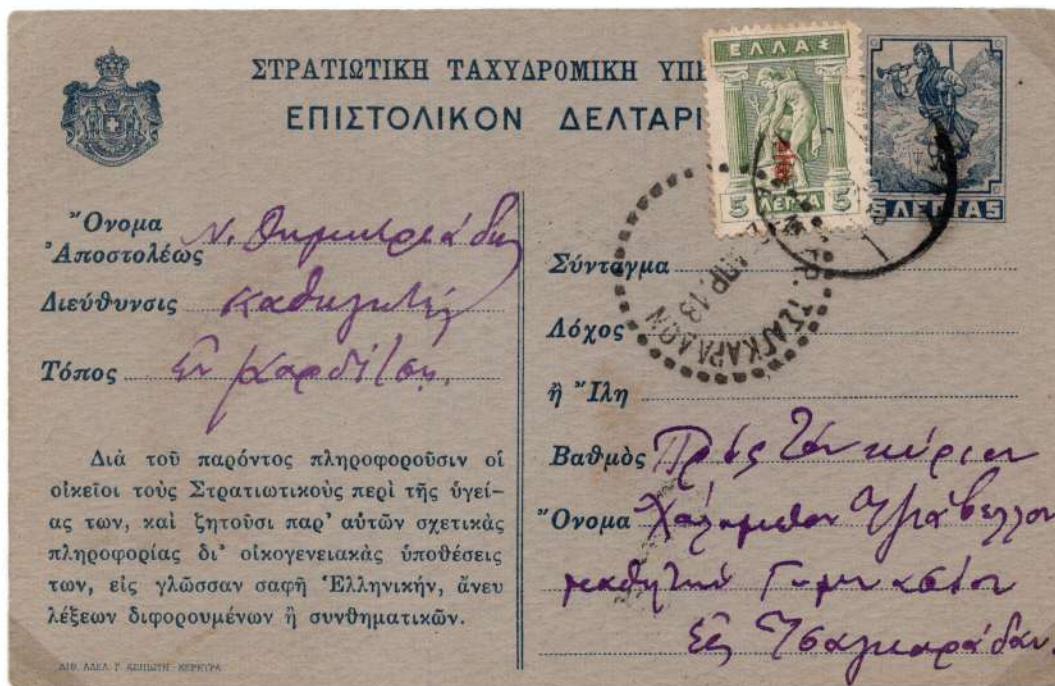 ΣΤΡΑΤΙΩΤΙΚΗ ΤΑΧΥΔΡΟΜΙΚΗ ΥΠΗ
ΕΠΙΣΤΟΛΙΚΟΝ ΔΕΛΤΑΡΙ
ΕΛΛΑΣ
5 ΛΕΠΤΑ 5
5 ΛΕΠΤΑ 5
ΤΣΑΓΚΑΡΑΔΩΝ
ΑΠΡ. 13
Ὄνομα Ἀποστολέως Ν. Δημητριάδης
Διεύθυνσις καθηγητὴς
Τόπος Ἐν Καρδίτσῃ.
Διὰ τοῦ παρόντος πληροφοροῦσιν οἱ
οἰκεῖοι τοὺς Στρατιωτικοὺς περὶ τῆς ὑγεί-
ας των, καὶ ζητοῦσι παρ' αὐτῶν σχετικὰς
πληροφορίας δι' οἰκογενειακὰς ὑποθέσεις
των, εἰς γλῶσσαν σαφῆ Ἑλληνικήν, ἄνευ
λέξεων διφορουμένων ἢ συνθηματικῶν.
ΛΙΘ. ΑΔΕΛ. Γ. ΑΣΠΙΩΤΗ - ΚΕΡΚΥΡΑ
Σύνταγμα
Λόχος
ἢ Ἴλη
Βαθμὸς Πρὸς τὸν κύριον
Ὄνομα
μαθητὴν Γυμνασίου
Εἰς Τσαγκαράδαν.